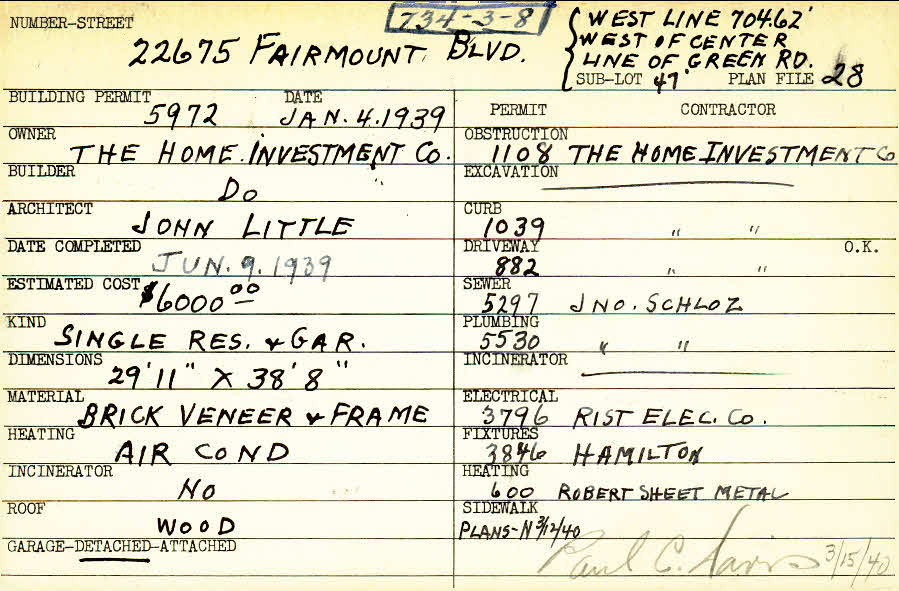 NUMBER-STREET
734-3-8
22675 FAIRMOUNT BLVD.
WEST LINE 704.62'
WEST OF CENTER
LINE OF GREEN RD.
SUB-LOT 47' PLAN FILE 28
BUILDING PERMIT DATE
5972 JAN. 4. 1939
OWNER
THE HOME INVESTMENT CO.
BUILDER
DO "
ARCHITECT
JOHN LITTLE
DATE COMPLETED
JUN. 9. 1939
ESTIMATED COST $6000 00
KIND
SINGLE RES. & GAR.
DIMENSIONS
29' 11" X 38' 8"
MATERIAL
BRICK VENEER & FRAME
HEATING
AIR COND
INCINERATOR
NO
ROOF
WOOD
GARAGE-DETACHED-ATTACHED
PERMIT CONTRACTOR
OBSTRUCTION
1108 THE HOME INVESTMENT CO
EXCAVATION
CURB
1039 " "
DRIVEWAY O.K.
882 " "
SEWER
5297 JNO. SCHLOZ
PLUMBING
5530 " "
INCINERATOR
ELECTRICAL
3796 RIST ELEC. CO.
FIXTURES
3846 HAMILTON
HEATING
600 ROBERT SHEET METAL
SIDEWALK
PLANS-N 3/12/40
Paul C. 3/15/40